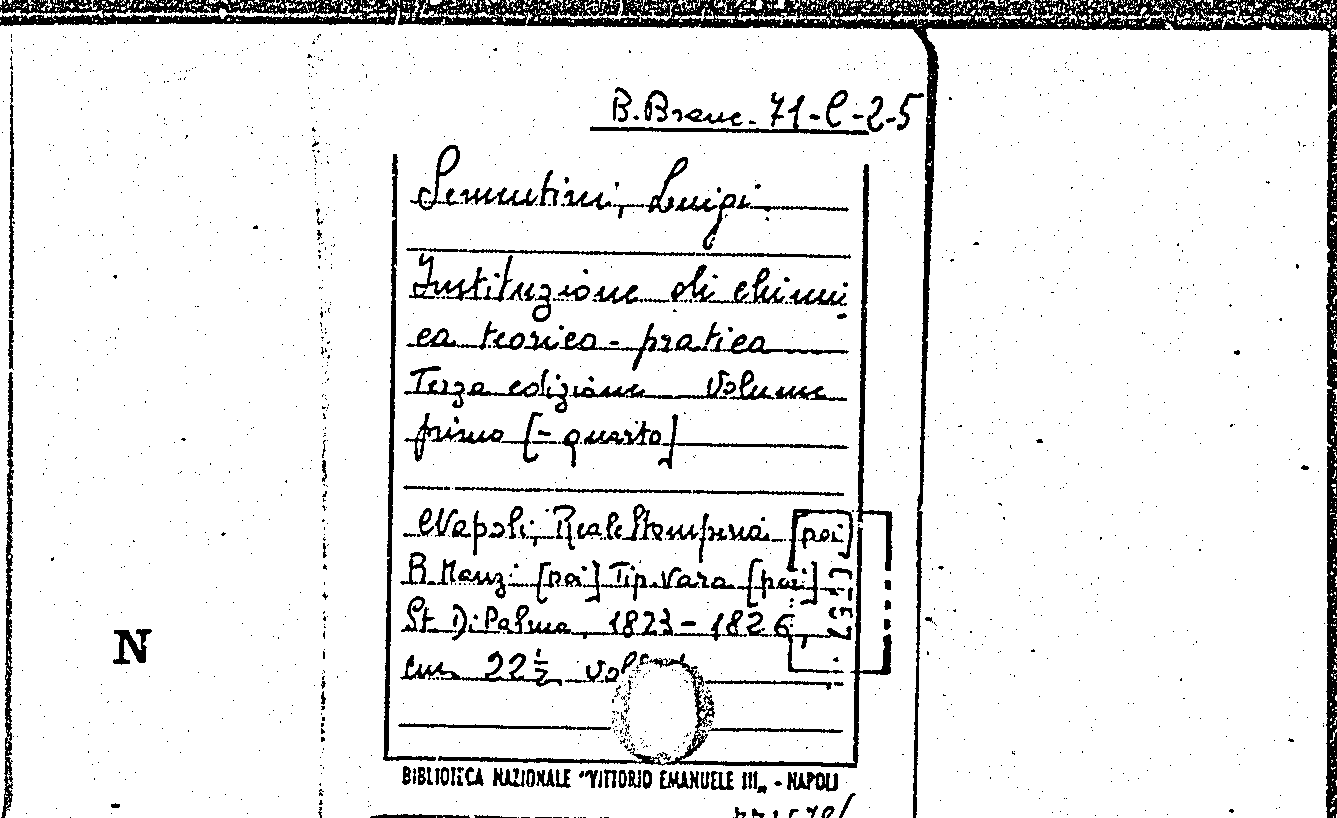 B. Branc. 71-C-2-5
Sementini, Luigi
Instituzione di chimi
ca teorico-pratica
Terza edizione Volume
primo [- quarto]
Napoli, Reale Stamperia [poi]
R. Manzi [poi] Tip. Vara [poi]
St. Di Palma, 1823-1826,
cm 22½ vol
N
BIBLIOTECA NAZIONALE "VITTORIO EMANUELE III„ - NAPOLI